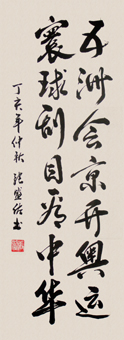 五洲会京开奥运
寰球刮目看中华
丁亥年仲秋 张盛绪书